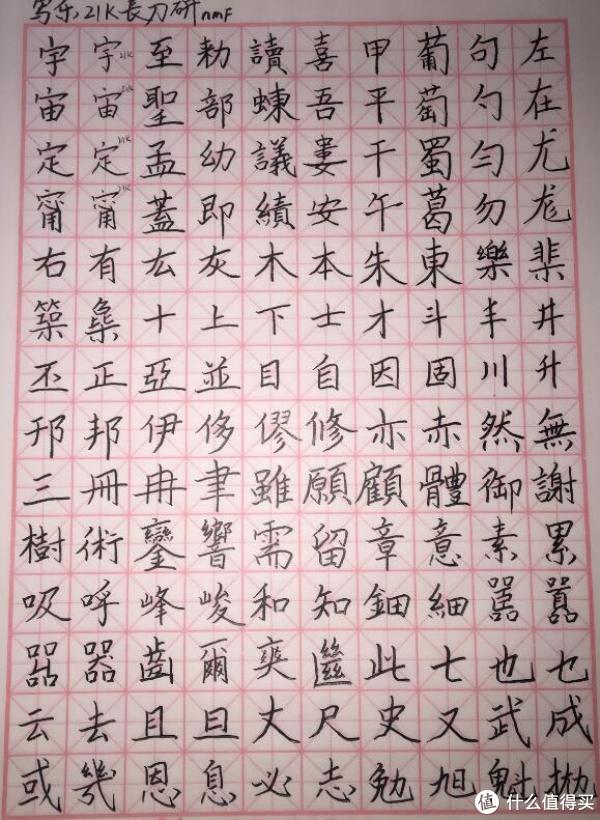 写乐,21K長刀研nmF
宇宇21K至勅讀喜甲葡句左
宙宙21K聖部蝀吾平萄勺在
定定21K孟幼議婁干蜀勻尤
甯甯21K蓋即績安午葛勿尨
右有厷灰木本朱東樂棐
築彙十上下士才斗丰井
丕正亞並目自因固川升
邘邦伊侈僇修亦赤然無
三冊冉聿雖願顧體御謝
樹術鑾響需留章意素累
吸呼峰峻和知鈿細嚚囂
噐器齒爾爽此七也乜
云去且旦丈尺史又武成
或幾恩息必志勉旭魁拋
值 什么值得买